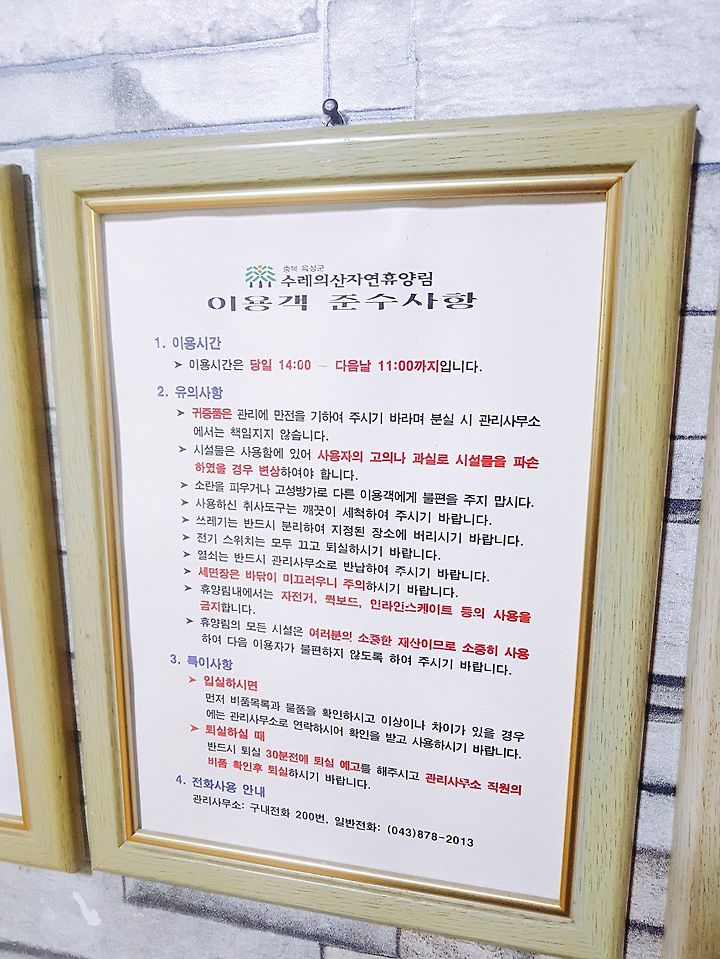 충북 음성군
수레의산자연휴양림
이용객 준수사항
1. 이용시간
➤ 이용시간은 당일 14:00 ~ 다음날 11:00까지입니다.
2. 유의사항
➤ 귀중품은 관리에 만전을 기하여 주시기 바라며 분실 시 관리사무소
에서는 책임지지 않습니다.
➤ 시설물은 사용함에 있어 사용자의 고의나 과실로 시설물을 파손
하였을 경우 변상하여야 합니다.
➤ 소란을 피우거나 고성방가로 다른 이용객에게 불편을 주지 맙시다.
➤ 사용하신 취사도구는 깨끗이 세척하여 주시기 바랍니다.
➤ 쓰레기는 반드시 분리하여 지정된 장소에 버리시기 바랍니다.
➤ 전기 스위치는 모두 끄고 퇴실하시기 바랍니다.
➤ 열쇠는 반드시 관리사무소로 반납하여 주시기 바랍니다.
➤ 세면장은 바닦이 미끄러우니 주의하시기 바랍니다.
➤ 휴양림내에서는 자전거, 퀵보드, 인라인스케이트 등의 사용을
금지합니다.
➤ 휴양림의 모든 시설은 여러분의 소중한 재산이므로 소중히 사용
하여 다음 이용자가 불편하지 않도록 하여 주시기 바랍니다.
3. 특이사항
➤ 입실하시면
먼저 비품목록과 물품을 확인하시고 이상이나 차이가 있을 경우
에는 관리사무소로 연락하시어 확인을 받고 사용하시기 바랍니다.
➤ 퇴실하실 때
반드시 퇴실 30분전에 퇴실 예고를 해주시고 관리사무소 직원의
비품 확인후 퇴실하시기 바랍니다.
4. 전화사용 안내
관리사무소: 구내전화 200번, 일반전화: (043)878-2013